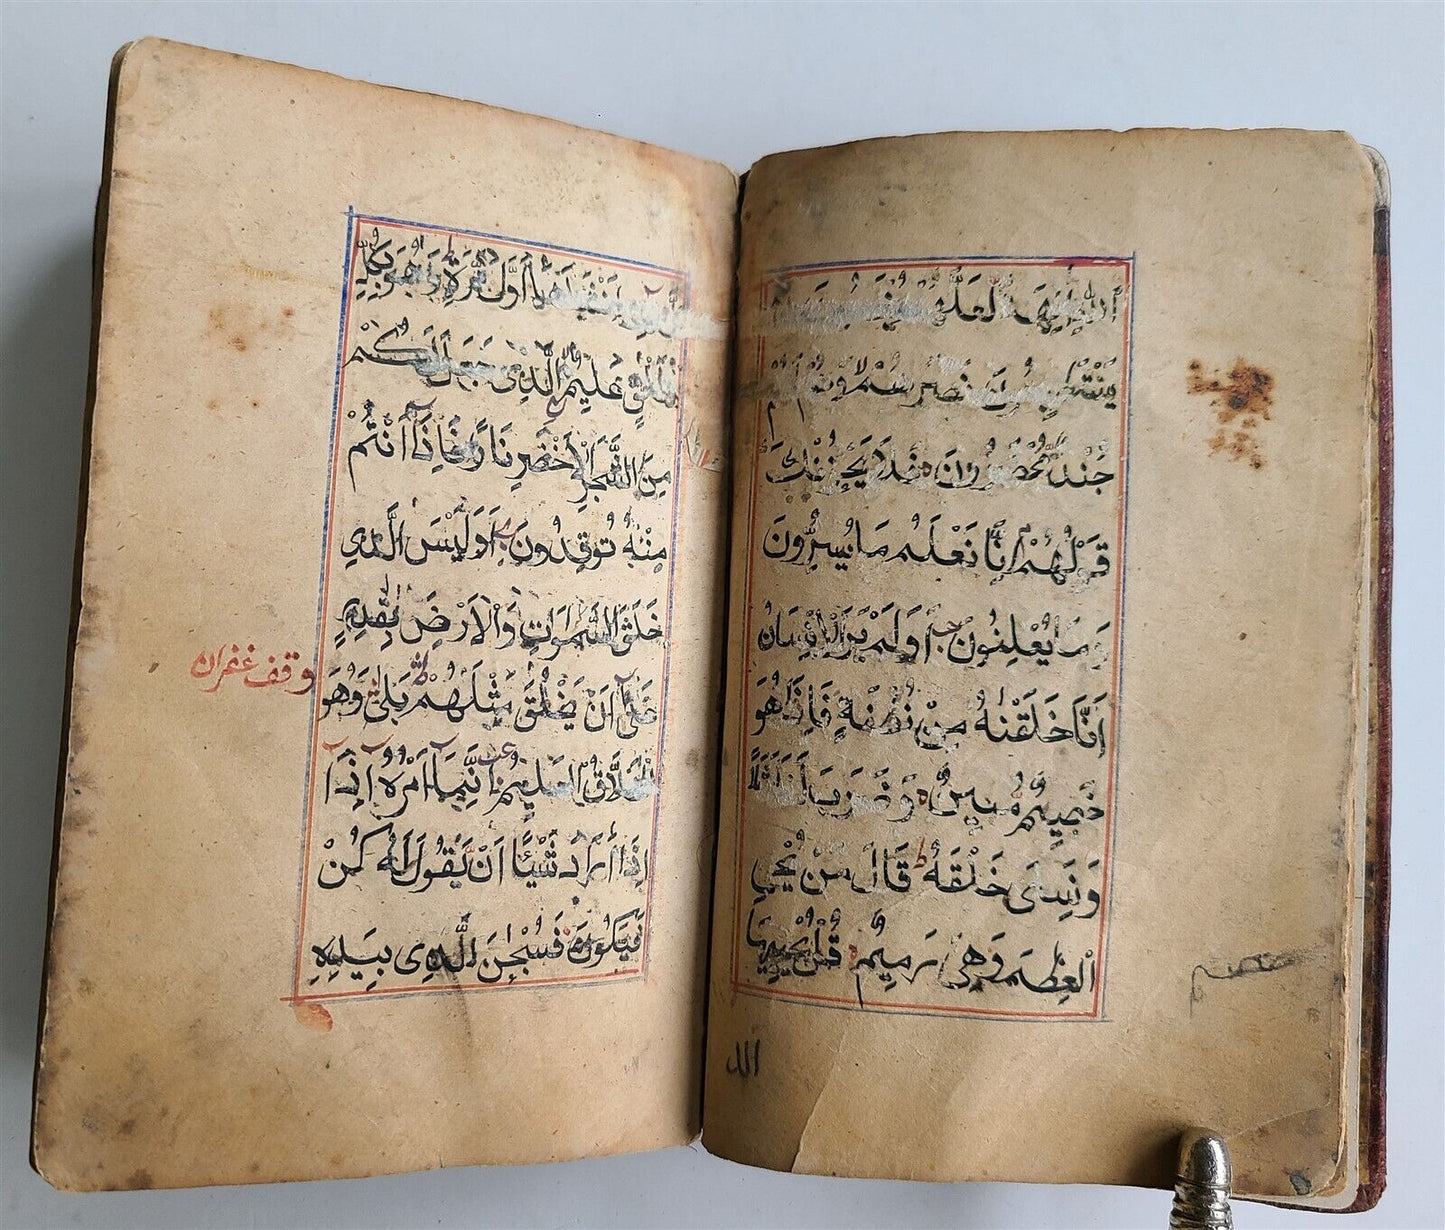 اللّٰهِ اٰلِهَةً لَعَلَّهُمْ
نَصْرَهُمْ وَهُمْ
جُنْدٌ مُحْضَرُونَ فَلَا يَحْزُنْكَ
قَوْلُهُمْ اِنَّا نَعْلَمُ مَا يُسِرُّونَ
وَمَا يُعْلِنُونَ اَوَلَمْ يَرَ الْاِنْسَانُ
اَنَّا خَلَقْنٰهُ مِنْ نُطْفَةٍ فَاِذَا هُوَ
خَصِيمٌ مُبِينٌ وَضَرَبَ لَنَا مَثَلًا
وَنَسِىَ خَلْقَهُ ط قَالَ مَنْ يُحْيِ
الْعِظٰمَ وَهِىَ رَمِيمٌ قُلْ يُحْيِيهَا
اَنْشَاَهَا اَوَّلَ مَرَّةٍ ط وَهُوَ بِكُلِّ
خَلْقٍ عَلِيمٌ الَّذِى جَعَلَ لَكُمْ
مِنَ الشَّجَرِ الْاَخْضَرِ نَارًا فَاِذَا اَنْتُمْ
مِنْهُ تُوقِدُونَ اَوَلَيْسَ الَّذِى
خَلَقَ السَّمٰوَاتِ وَالْاَرْضَ بِقٰدِرٍ
عَلٰى اَنْ يَخْلُقَ مِثْلَهُمْ ط بَلٰى وَهُوَ
وقف غفران
الْخَلَّاقُ الْعَلِيمُ اِنَّمَا اَمْرُهُ اِذَا
اِذَا اَرَادَ شَيْئًا اَنْ يَقُولَ لَهُ كُنْ
فَيَكُونُ فَسُبْحٰنَ الَّذِى بِيَدِهِ